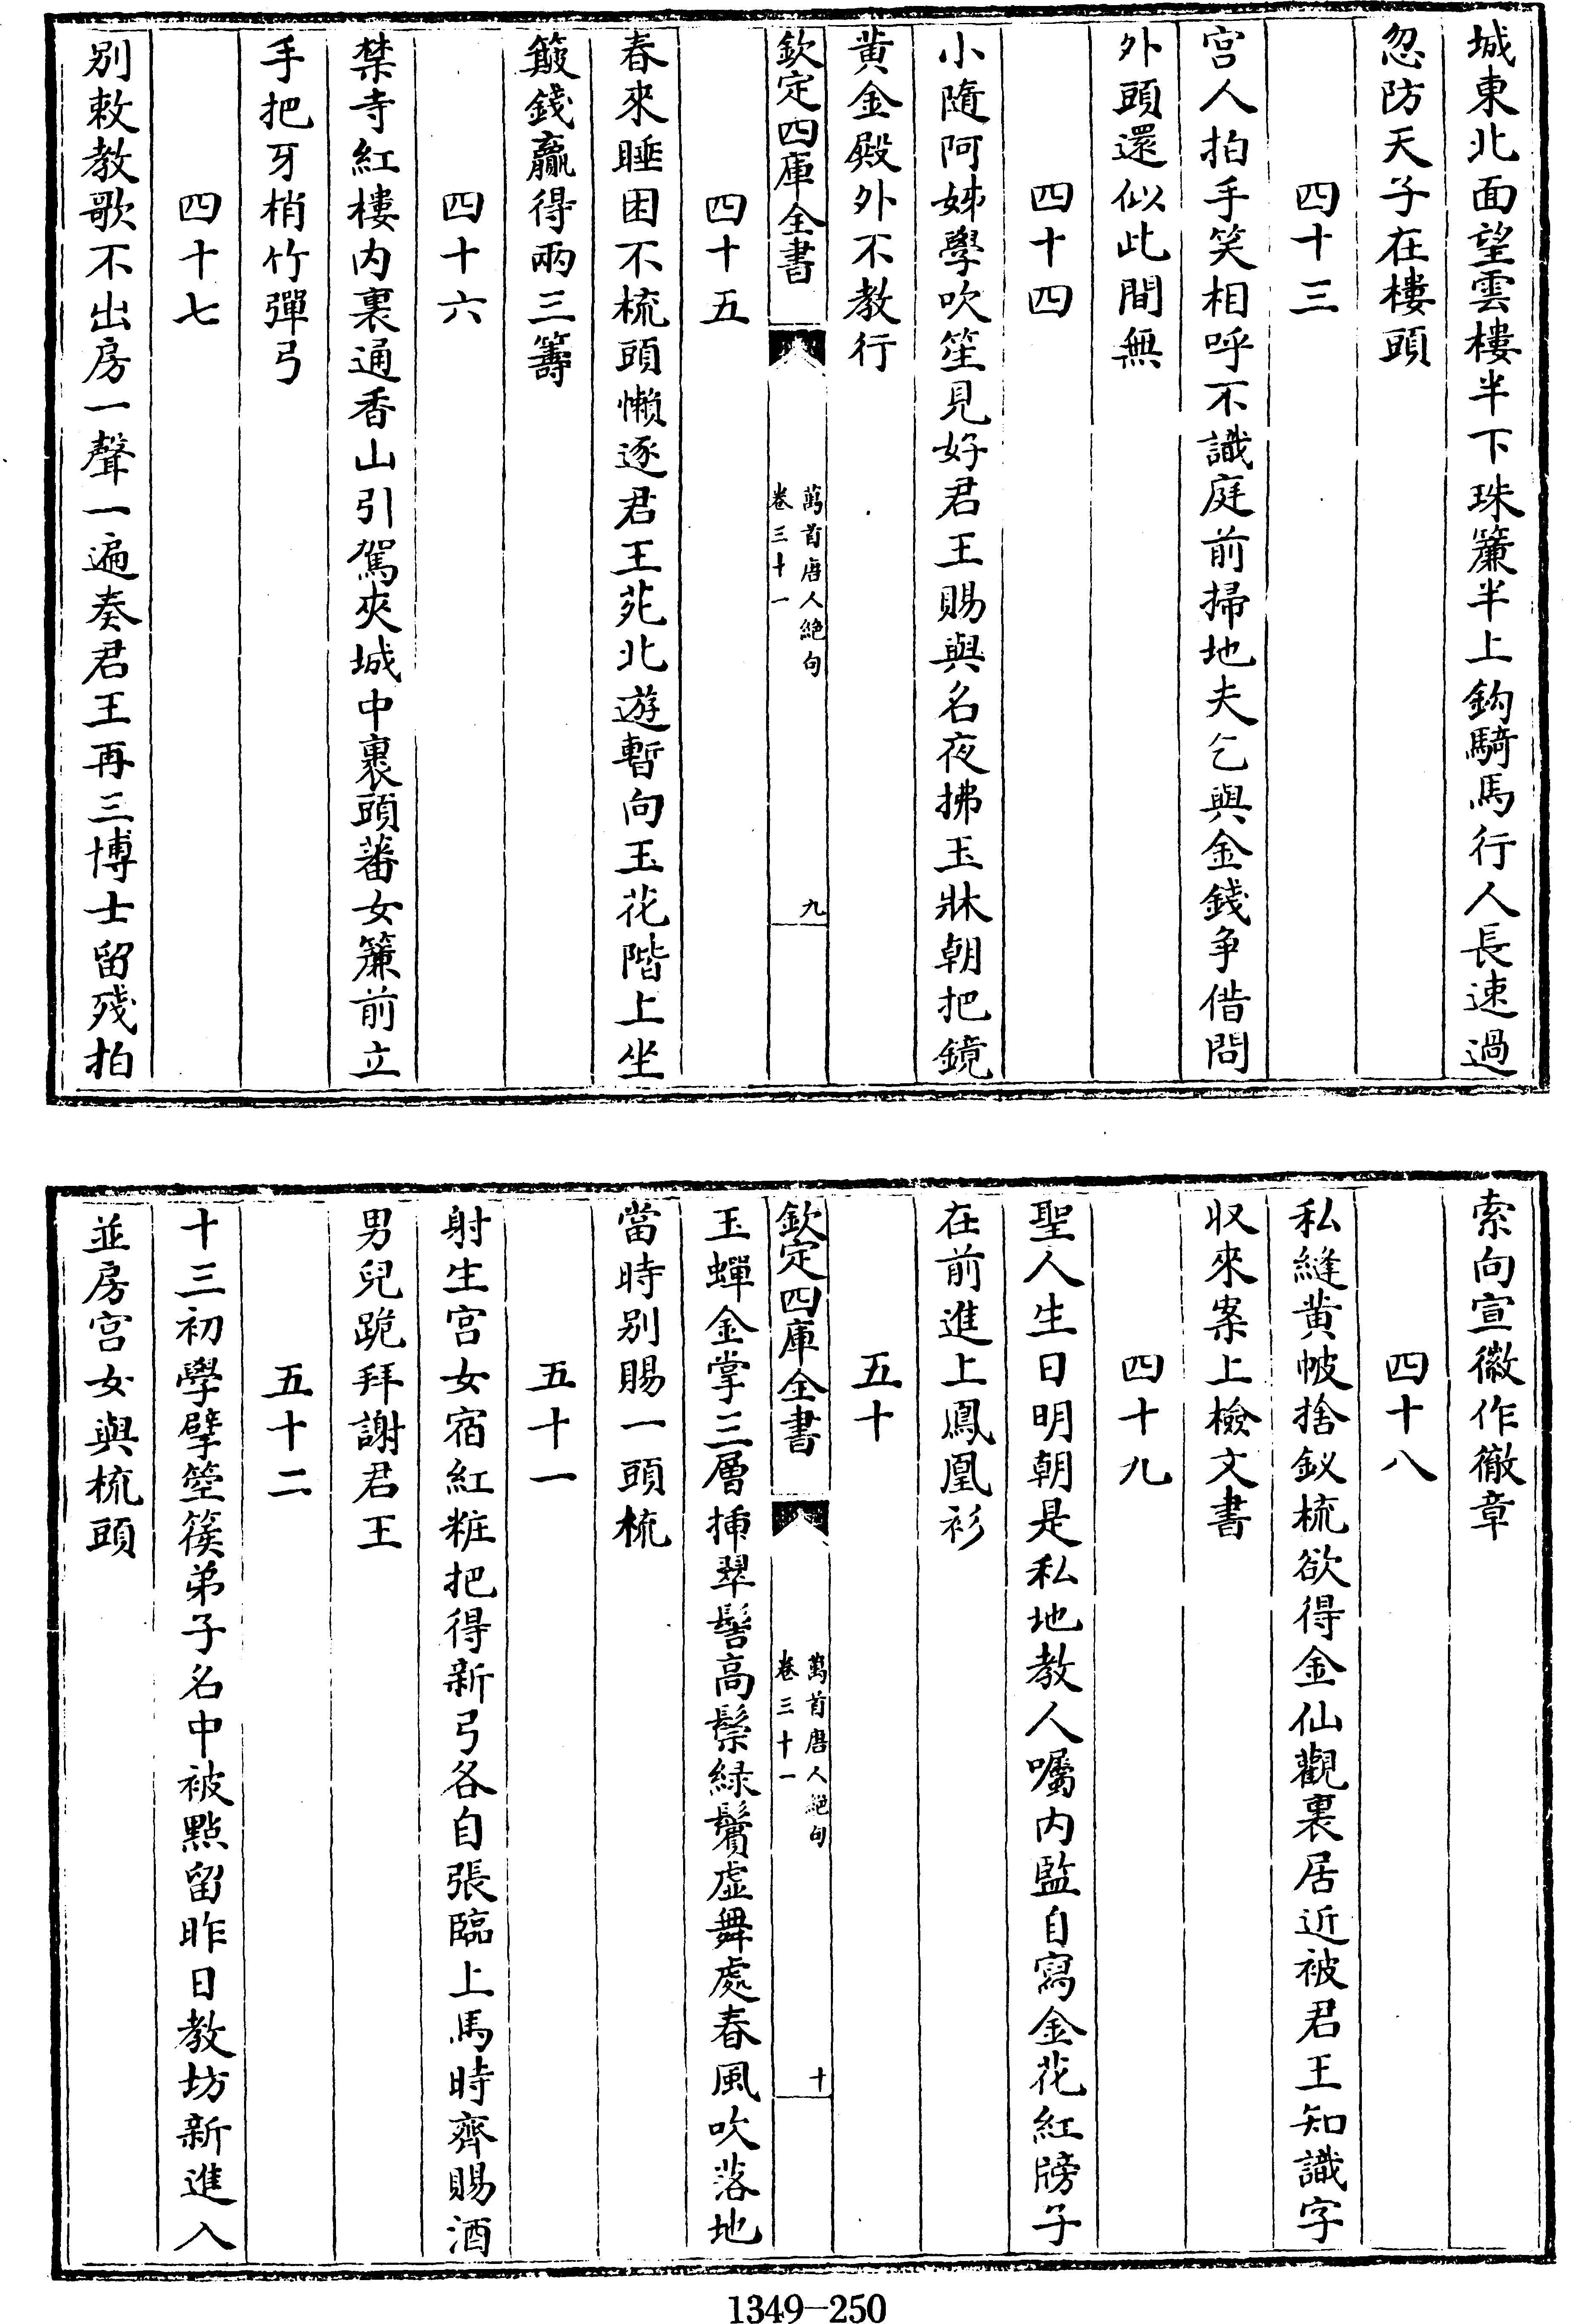 城東北面望雲樓半下珠簾半上鈎騎馬行人長速過
忽防天子在樓頭
四十三
宮人拍手笑相呼不識庭前掃地夫乞與金錢争借問
外頭還似此間無
四十四
小隨阿姊學吹笙見好君王賜與名夜拂玉牀朝把鏡
黄金殿外不教行
欽定四庫全書
萬首唐人絶句
卷三十一
九
四十五
春來睡困不梳頭懶逐君王苑北遊暫向玉花階上坐
簸錢贏得兩三籌
四十六
禁寺紅樓内裏通香山引駕夾城中裹頭蕃女簾前立
手把牙梢竹彈弓
四十七
別敕教歌不出房一聲一遍奏君王再三博士留殘拍
索向宣徽作徹章
四十八
私縫黄帔捨釵梳欲得金仙觀裏居近被君王知識字
収來案上檢文書
四十九
聖人生日明朝是私地教人囑内監自寫金花紅牓子
在前進上鳳凰衫
五十
欽定四庫全書
萬首唐人絶句
卷三十一
十
玉蟬金掌三層揷翠髻高鬆緑鬢虛舞處春風吹落地
當時別賜一頭梳
五十一
射生宮女宿紅粧把得新弓各自張臨上馬時齊賜酒
男兒跪拜謝君王
五十二
十三初學擘箜篌弟子名中被點留昨日教坊新進入
並房宮女與梳頭
1349—250